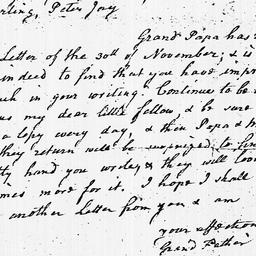 rling, Peter Jay
Grand Papa has
Letter of the 30th of November; & is
indeed to find that you have impr
uch in your writing. Continue to be
us my dear little fellow & be sure
a Copy every day, & then Papa & M
they return will be surprized to fin
tty hand you write, & they will love
imes more for it. I hope I shall
another Letter from you & am
your affection
Grand Father